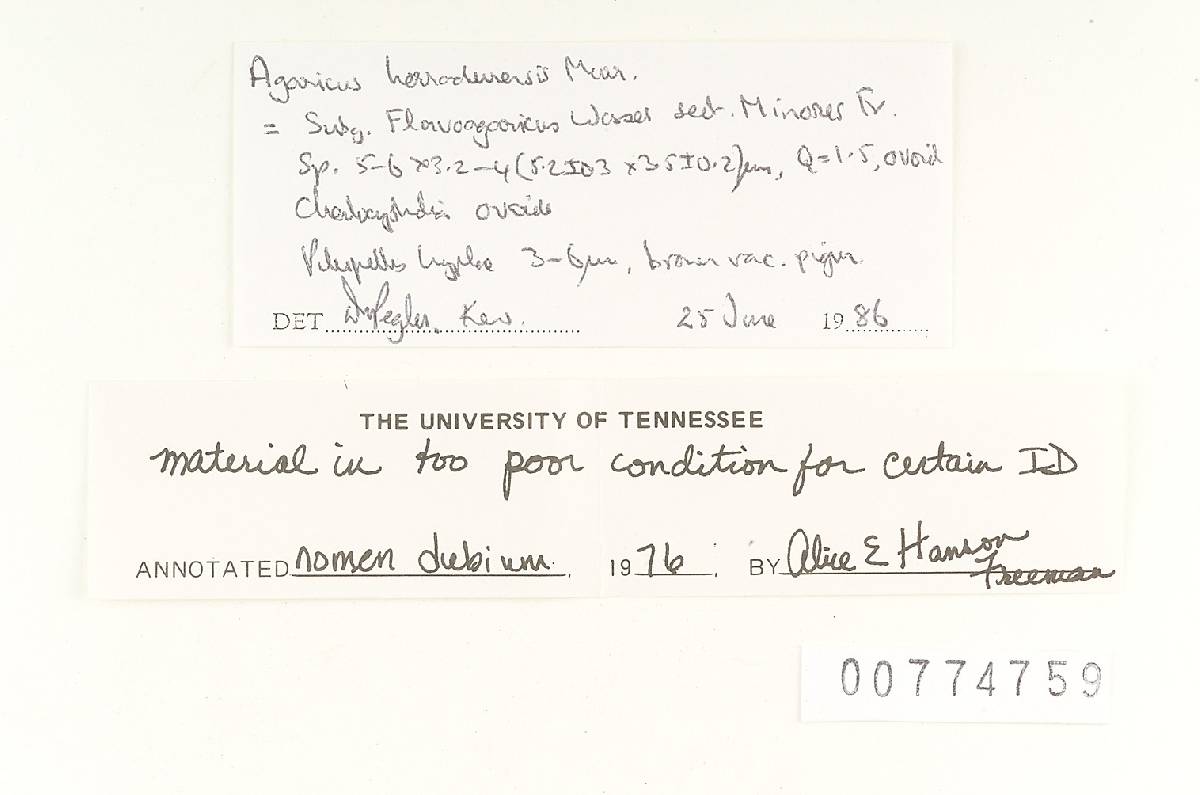 Agaricus horradurensis Murr.
= Subg. Flavoagaricus Wasser sect. Minores Fr.
Sp. 5-6 x 3.2-4 (5.2±0.3 x 3.5±0.2)µm, Q=1.5, ovoid
Cheilocystidia ovoid
Pileipellis hyphae 3-6µm, brown vac. pigm.
DET DPegler, Kew. 25 June 1986
THE UNIVERSITY OF TENNESSEE
material in too poor condition for certain ID
ANNOTATED nomen dubium. 1976. BY Alice E Hanson Freeman
00774759